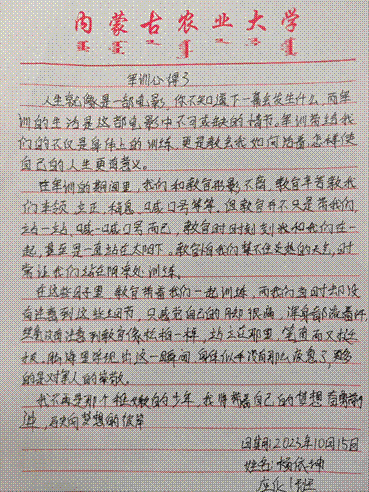 内蒙古农业大学
军训心得
人生就像是一部电影,你不知道下一幕会发生什么,而军
训的生活是这部电影中不可或缺的情节。军训带给我
们的不仅是身体上的训练,更是教会我如何活着,怎样使
自己的人生更有意义。
在军训的期间里,我们和教官形影不离,教官辛苦教我
们 立正,稍息,喊口号等等,但教官并不只是带我们
站一站,喊一喊口号而已,教官时时刻刻我和我们在一
起,甚至是一直站在太阳下,教官怕我们禁不住炎热的天气,时
常让我们站在阴凉处训练。
在这些日子里,教官带着我们一起训练,而我们当时却没
有注意到这些细节,只感觉自己的脚很痛,浑身都流着汗,
没有注意到教官像松柏一样,站立在那里,笔直而又挺
拔,脑海里浮现出这一瞬间,自己似乎没有那么疲惫了,更多
的是对军人的崇敬。
我不再是那个稚嫩的少年,我将带着自己的梦想
迈 向梦想的彼岸
日期:2023年10月15日
姓名:杨依坤